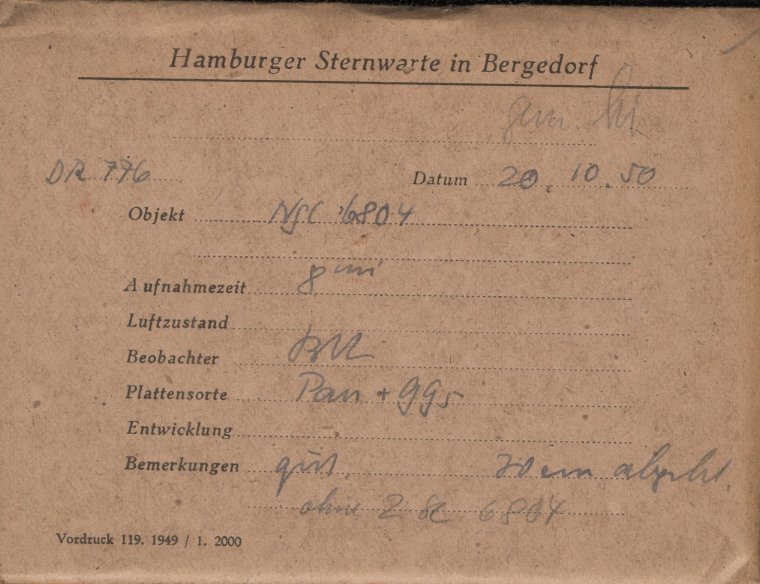 Hamburger Sternwarte in Bergedorf
gem.
DR 776 Datum 20.10.50
Objekt NGC 6804
Aufnahmezeit 8 min
Luftzustand
Beobachter
Plattensorte Pan + GG5
Entwicklung
Bemerkungen gut. 70 cm
ohne 6804
Vordruck 119. 1949 / 1. 2000